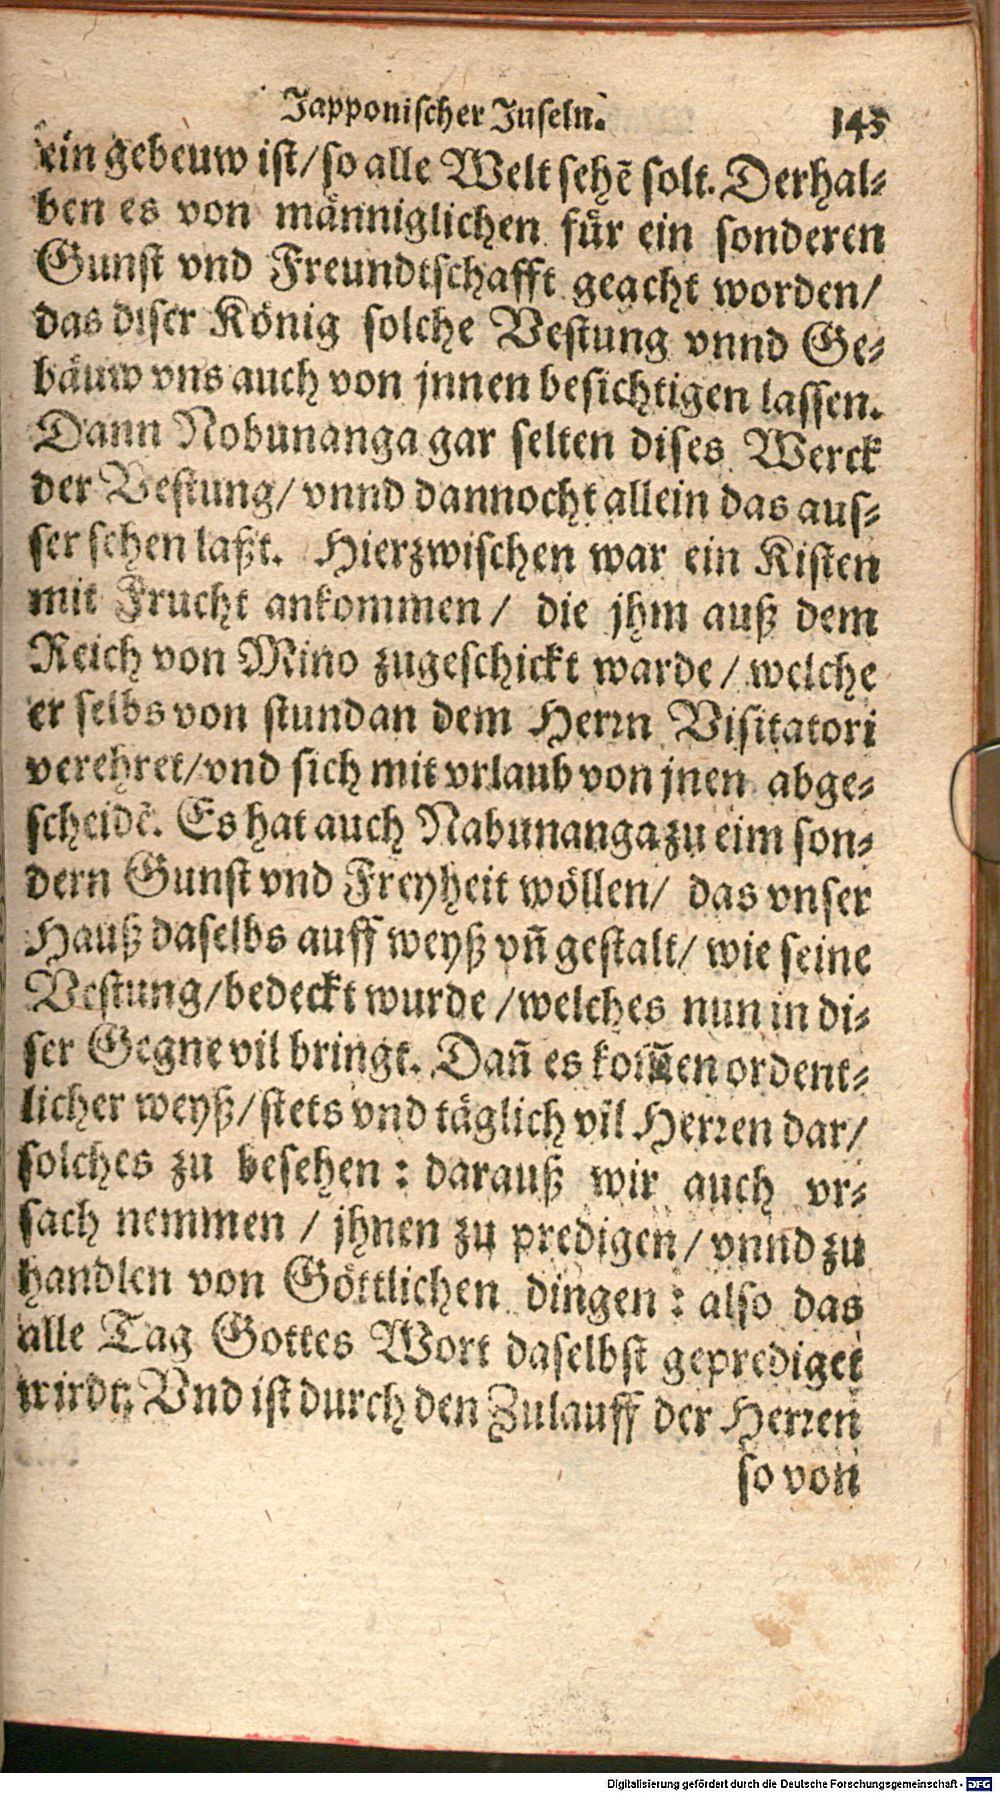 Japponischer Inseln. 145
ein gebeuw ist/ so alle Welt sehẽ solt. Derhal⸗
ben es von männiglichen für ein sonderen
Gunst vnd Freundtschafft geacht worden/
das diser König solche Vestung vnnd Ge⸗
bäuw vns auch von jnnen besichtigen lassen.
Dann Nobunanga gar selten dises Werck
der Vestung/ vnnd dannocht allein das aus⸗
ser sehen laßt. Hierzwischen war ein Kisten
mit Frucht ankommen/ die jhm auß dem
Reich von Mino zugeschickt warde/ welche
er selbs von stundan dem Herrn Visitatori
verehret/ vnd sich mit vrlaub von jnen abge⸗
scheidẽ. Es hat auch Nabunanga zu eim son⸗
dern Gunst vnd Freyheit wöllen/ das vnser
Hauß daselbs auff weyß vñ gestalt/ wie seine
Vestung/ bedeckt wurde/ welches nun in di⸗
ser Gegne vil bringt. Dañ es kom̃en ordent⸗
licher weyß/ stets vnd täglich vil Herren dar/
solches zu besehen: darauß wir auch vr⸗
sach nemmen/ jhnen zu predigen/ vnnd zu
handlen von Göttlichen dingen: also das
alle Tag Gottes Wort daselbst geprediget
wirdt. Vnd ist durch den Zulauff der Herren
so von
Digitalisierung gefördert durch die Deutsche Forschungsgemeinschaft - DFG